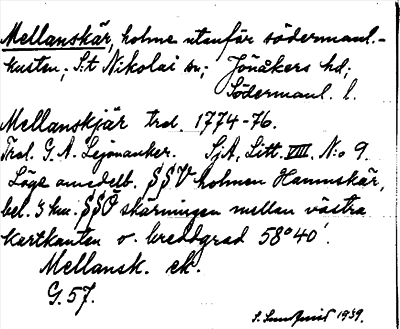 Mellanskär, holme utanför södermanl.-
kusten; S:t Nikolai sn; Jönåkers hd;
Södermanl. l.
Mellanskjär trol. 1774-76.
Trol. G. A. Lejonanker. SjA, Litt. VIII, N:o 9.
Läge omedelb. SSV holmen Hamnskär,
bel. 3 km. SSÖ skärningen mellan västra
kartkanten o. breddgrad 58°40'.
Mellansk. ek.
G. 57.
1939.